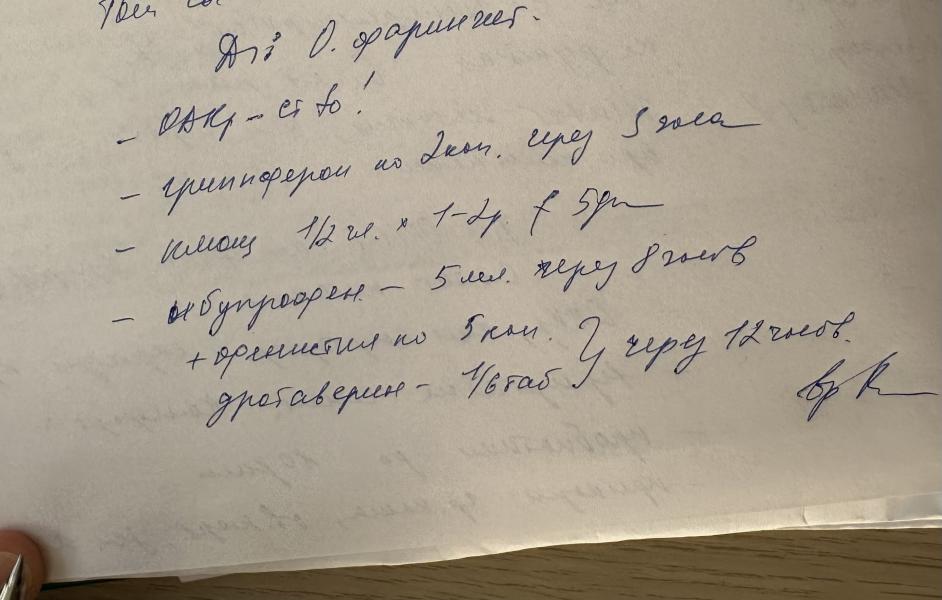 Ds: О. фарингит.
- ОАКр - cito!
- гриппферон по 2 кап. через 3 часа
- 1/2 × 1-2р. 5дн
- ибупрофен - 5 мл. через 8 часов
+ фенистил по 5 кап. } через 12 часов.
дротаверин - 1/6 таб
вр